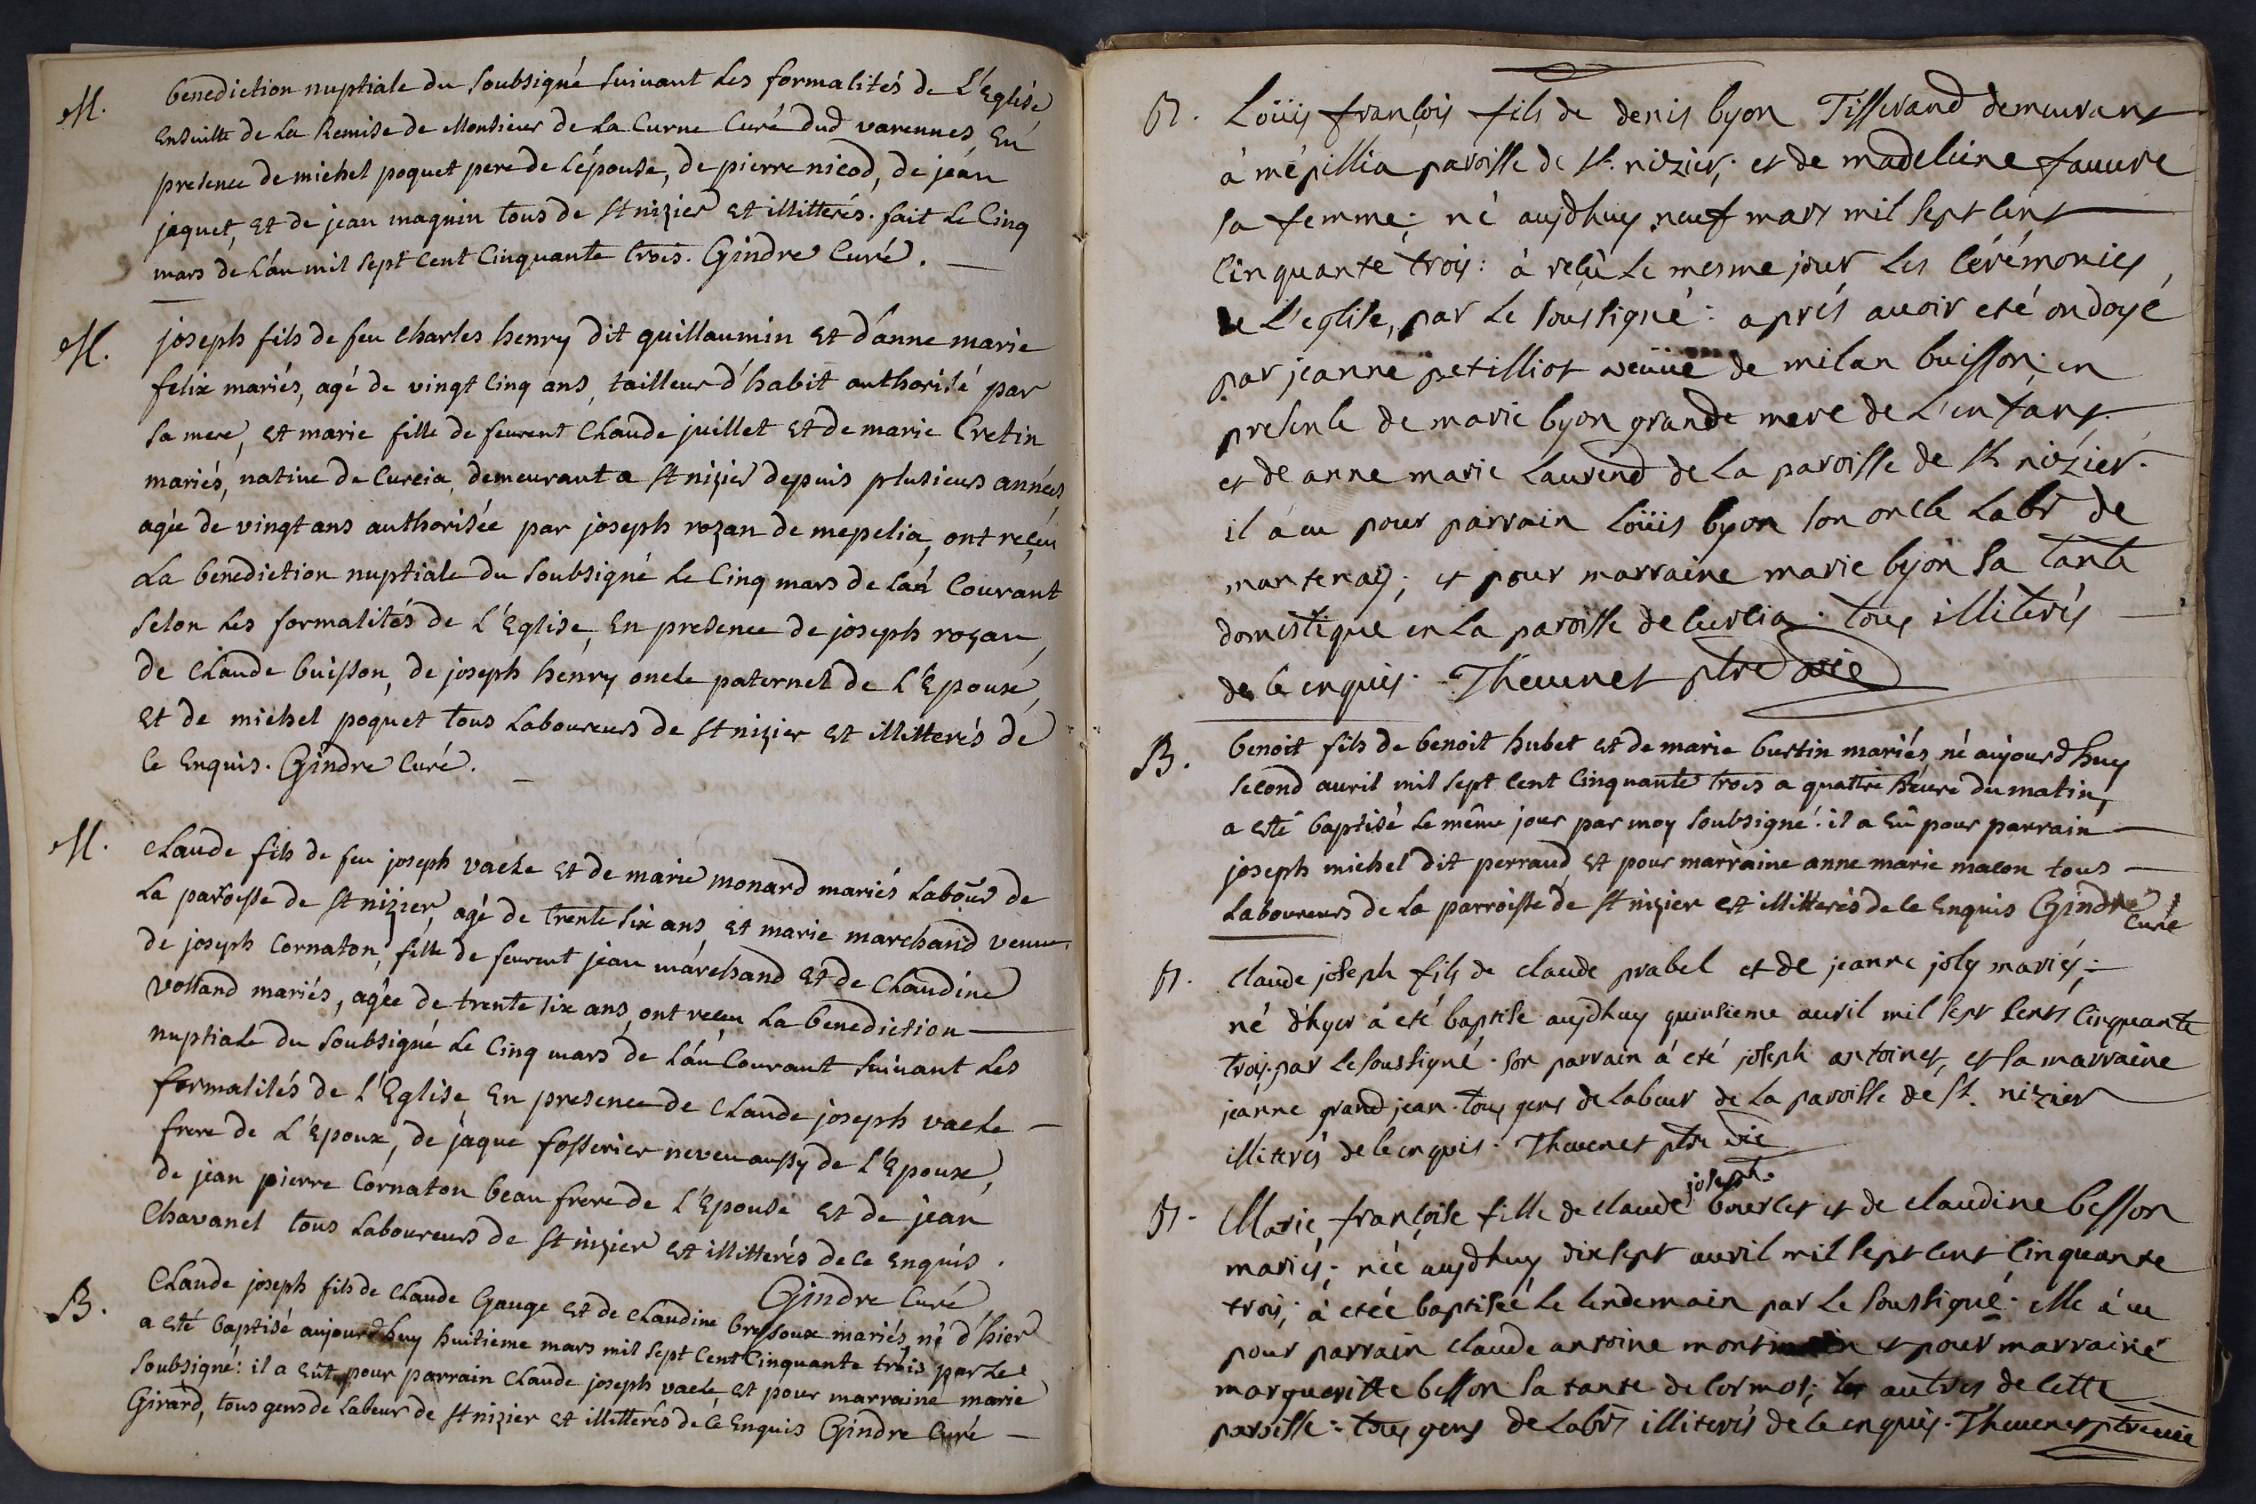 M. benediction nuptiale du soubsigné suivant les formalités de L'Eglise,
Ensuitte de La Remise de Monsieur de La Curne Curé dud varennes, En
presence de michel poquet pere de L'épouse, de pierre nicod, de jean
jaquet, Et de jean maguin tous de st nizier Et illitterés. fait Le Cinq
mars de L'an mil sept Cent Cinquante trois. Gindre Curé.
M. joseph fils de feu Charles henry dit guillaumin Et d'anne marie
felix mariés, agé de vingt Cinq ans, tailleur d'habit authorisé par
sa mere, Et marie fille de feurent Claude juillet Et de marie Cretin
mariés, native de Cureia, demeurant a st nizier depuis plusieurs années
agée de vingt ans authorisée par joseph rozan de mepelia, ont reçeu
La benediction nuptiale du soubsigné Le Cinq mars de L'an Courant
selon Les formalités de L'Eglise, En presence de joseph rozan,
de Claude buisson, de joseph henry oncle paternel de L'Epoux,
Et de michel poquet tous Laboureurs de st nizier Et illitterés de
Ce Enquis. Gindre Curé.
M. Claude fils de feu joseph vache Et de marie monard mariés Labour de
La paroisse de st nizier, agé de trente six ans Et marie marchand veuve
de joseph Cornaton, fille de feurent jean marchand Et de Claudine
Volland mariés, agée de trente six ans, ont reçeu La benediction
nuptiale du soubsigné Le Cinq mars de L'an Courant suivant Les
formalités de L'Eglise, En presence de Claude joseph vache
frere de L'Epoux, de jaque fosserier neveu aussy de L'Epoux,
de jean pierre Cornaton beau frere de L'Epouse Et de jean
Chavanel tous Laboureurs de st nizier Et illitterés de Ce Enquis.
Gindre Curé
B. Claude joseph fils de Claude Gauge Et de Claudine bressoux mariés, né d'hier
a Eté baptisé aujourdhuy huitieme mars mil sept Cent Cinquante trois par Le
soubsigné: il a Eut pour parrain Claude joseph vache Et pour marraine marie
Girard, tous gens de Labeur de st nizier Et illitterés de Ce Enquis Gindre Curé
B. Loüis françois fils de denis byon Tisserand demeurant
à mépillia paroisse de st. nizier; et de madeleine fauure
sa femme; né aujdhuy neuf mars mil sept cent
cinquante trois: à reçù Le mesme jour Les cérémonies
de L'eglise, par Le soussigné: aprés auoir eté ondoyé
par jeanne petilliot veüue de milan buisson; en
presence de marie byon grande mere de L'enfant.
et de anne marie Laurend de La paroisse de st nizier.
il à eu pour parrain Loüis byon son oncle Labr de
mantenay; et pour marraine marie byon sa tante
domestique en La paroisse de curcia. tous illiterés
de ce enquis. Theuenet ptre vic
B. benoit fils de benoit hubet Et de marie burtin mariés, né aujourdhuy
second auril mil sept Cent Cinquante trois a quattre heure du matin,
a esté baptisé Le même jour par moy soubsigné: il a Eû pour parrain
joseph michel dit perraud, Et pour marraine anne marie macon tous
Laboureurs de La parroisse de st nizier Et illitterés de Ce Enquis Gindre
Curé
B. Claude joseph fils de claude prabel et de jeanne joly mariés;
né d'hyer à eté baptise aujdhuy quinsieme auril mil sept cents Cinquante
trois. par Le soussigné. son parrain à eté joseph antoinet, et sa marraine
jeanne grand jean. tous gens de Labeur de La paroisse de st. nizier
illiterés de ce enquis. Theuenet ptre vic
joseph
B. Marie françoise fille de claude bourcet et de claudine besson
mariés; née aujdhuy dixsept auril mil sept cent Cinquante
trois; à etée baptisée Le Lendemain par Le soussigné. elle à eu
pour parrain claude antoine et pour marraine
marguerite besson sa tante de cormos; Les autres de cette
paroisse: tous gens de Labr illiterés de ce enquis. Theuenet ptre vic